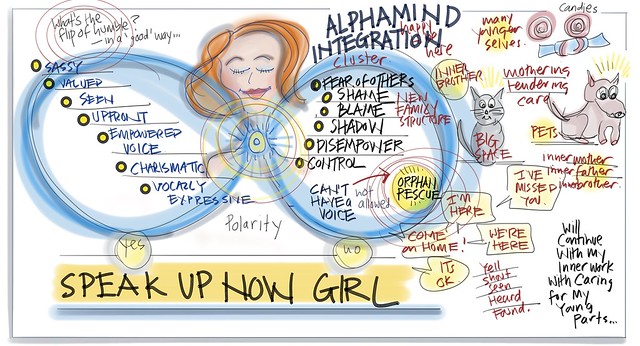 What's the
flip of humble?
in a 'good' way...
SASSY
VALUED
SEEN
UPFRONT
EMPOWERED
VOICE
CHARISMATIC
VOCALLY
EXPRESSIVE
Polarity
yes
no
SPEAK UP NOW GIRL
ALPHAMIND
INTEGRATION
Cluster
happy
be
here
FEAR OF OTHERS
SHAME
BLAME
SHADOW
DISEMPOWER
CONTROL
CAN'T
HAVE a
VOICE
not
allowed
NEW
FAMILY
STRUCTURE
ORPHAN
RESCUE
INNER
BROTHER
many
younger
selves.
candies
mothering
tendering
care
BIG
SPACE
PETS
inner mother
inner father
inner brother.
I'VE
MISSED
YOU.
I'M
HERE
COME
on HOME!
WE'RE
HERE
IT'S
OK
Yell
Shout
Seen
Heard
Found.
Will
Continue
With My
Inner work
With Caring
for My
Young
Parts...